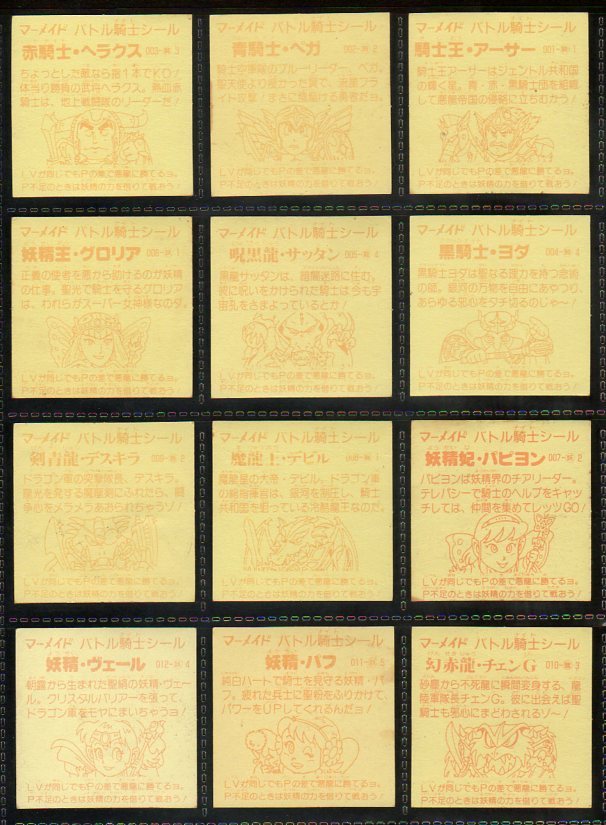 マーメイド バトル騎士シール
赤騎士・ヘラクス 003-騎3
ちょっとした敵なら指1本でKO!
体当り勝負の武将ヘラクス。熱血赤
騎士は、地上戦闘隊のリーダーだ!
LVが同じでもPの差で悪龍に勝てるヨ。
P不足のときは妖精の力を借りて戦おう!
マーメイド バトル騎士シール
青騎士・ペガ 002-騎2
騎士空軍隊のブルーリーダー、ペガ。
聖天使より授かった翼で、流星フラ
イト攻撃!まさに飛駆ける勇者だヨ。
LVが同じでもPの差で悪龍に勝てるヨ。
P不足のときは妖精の力を借りて戦おう!
マーメイド バトル騎士シール
騎士王・アーサー 001-騎1
騎士王アーサーはジェントル共和国
の輝く星。青・赤・黒騎士団を組織
して悪龍帝国の侵略に立ちむかう!
LVが同じでもPの差で悪龍に勝てるヨ。
P不足のときは妖精の力を借りて戦おう!
マーメイド バトル騎士シール
妖精王・グロリア 006-妖1
正義の使者を悪から助けるのが妖精
の仕事。聖光で騎士を守るグロリア
は、われらがスーパー女神様なのダ。
LVが同じでもPの差で悪龍に勝てるヨ。
P不足のときは妖精の力を借りて戦おう!
マーメイド バトル騎士シール
呪黒龍・サッタン 005-龍4
黒龍サッタンは、暗闇迷路に住む。
彼に呪いをかけられた騎士は今も宇
宙孔をさまよっているとか!
LVが同じでもPの差で悪龍に勝てるヨ。
P不足のときは妖精の力を借りて戦おう!
マーメイド バトル騎士シール
黒騎士・ヨダ 004-騎4
黒騎士ヨダは聖なる理力を持つ念術
の師。銀河の万物を自由にあやつり、
あらゆる邪心をダチ切るのじゃ〜!
LVが同じでもPの差で悪龍に勝てるヨ。
P不足のときは妖精の力を借りて戦おう!
マーメイド バトル騎士シール
剣青龍・デスキラ 009-龍2
ドラゴン軍の突撃隊長、デスキラ。
龍光を発する魔撃剣にふれたら、戦
争心をメラメラあおられちゃうゾ!
LVが同じでもPの差で悪龍に勝てるヨ。
P不足のときは妖精の力を借りて戦おう!
マーメイド バトル騎士シール
魔龍王・デビル 008-龍1
魔龍星の大帝・デビル。ドラゴン軍
の総指揮官は、銀河を制圧し、騎士
共和国を狙っている冷酷龍王なのだ。
LVが同じでもPの差で悪龍に勝てるヨ。
P不足のときは妖精の力を借りて戦おう!
マーメイド バトル騎士シール
妖精妃・パピヨン 007-妖2
パピヨンは妖精界のチアリーダー。
テレパシーで騎士のヘルプをキャッ
チしては、仲間を集めてレッツGO!
LVが同じでもPの差で悪龍に勝てるヨ。
P不足のときは妖精の力を借りて戦おう!
マーメイド バトル騎士シール
妖精・ヴェール 012-妖4
朝露から生まれた聖絹の妖精・ヴェー
ル。クリスタルバリアーを張って、
ドラゴン軍をモヤにまいちゃうヨ!
LVが同じでもPの差で悪龍に勝てるヨ。
P不足のときは妖精の力を借りて戦おう!
マーメイド バトル騎士シール
妖精・パフ 011-妖5
純白ハートで騎士を見守る妖精・パ
フ。疲れた兵士に聖粉をふりかけて、
パワーをUPしてくれるんだョ!
LVが同じでもPの差で悪龍に勝てるヨ。
P不足のときは妖精の力を借りて戦おう!
マーメイド バトル騎士シール
幻赤龍・チェンG 010-龍3
砂塵から不死龍に瞬間変身する、龍
陸軍隊長チェンG。彼に出会えば聖
騎士も邪心にまどわされるゾ〜!
LVが同じでもPの差で悪龍に勝てるヨ。
P不足のときは妖精の力を借りて戦おう!